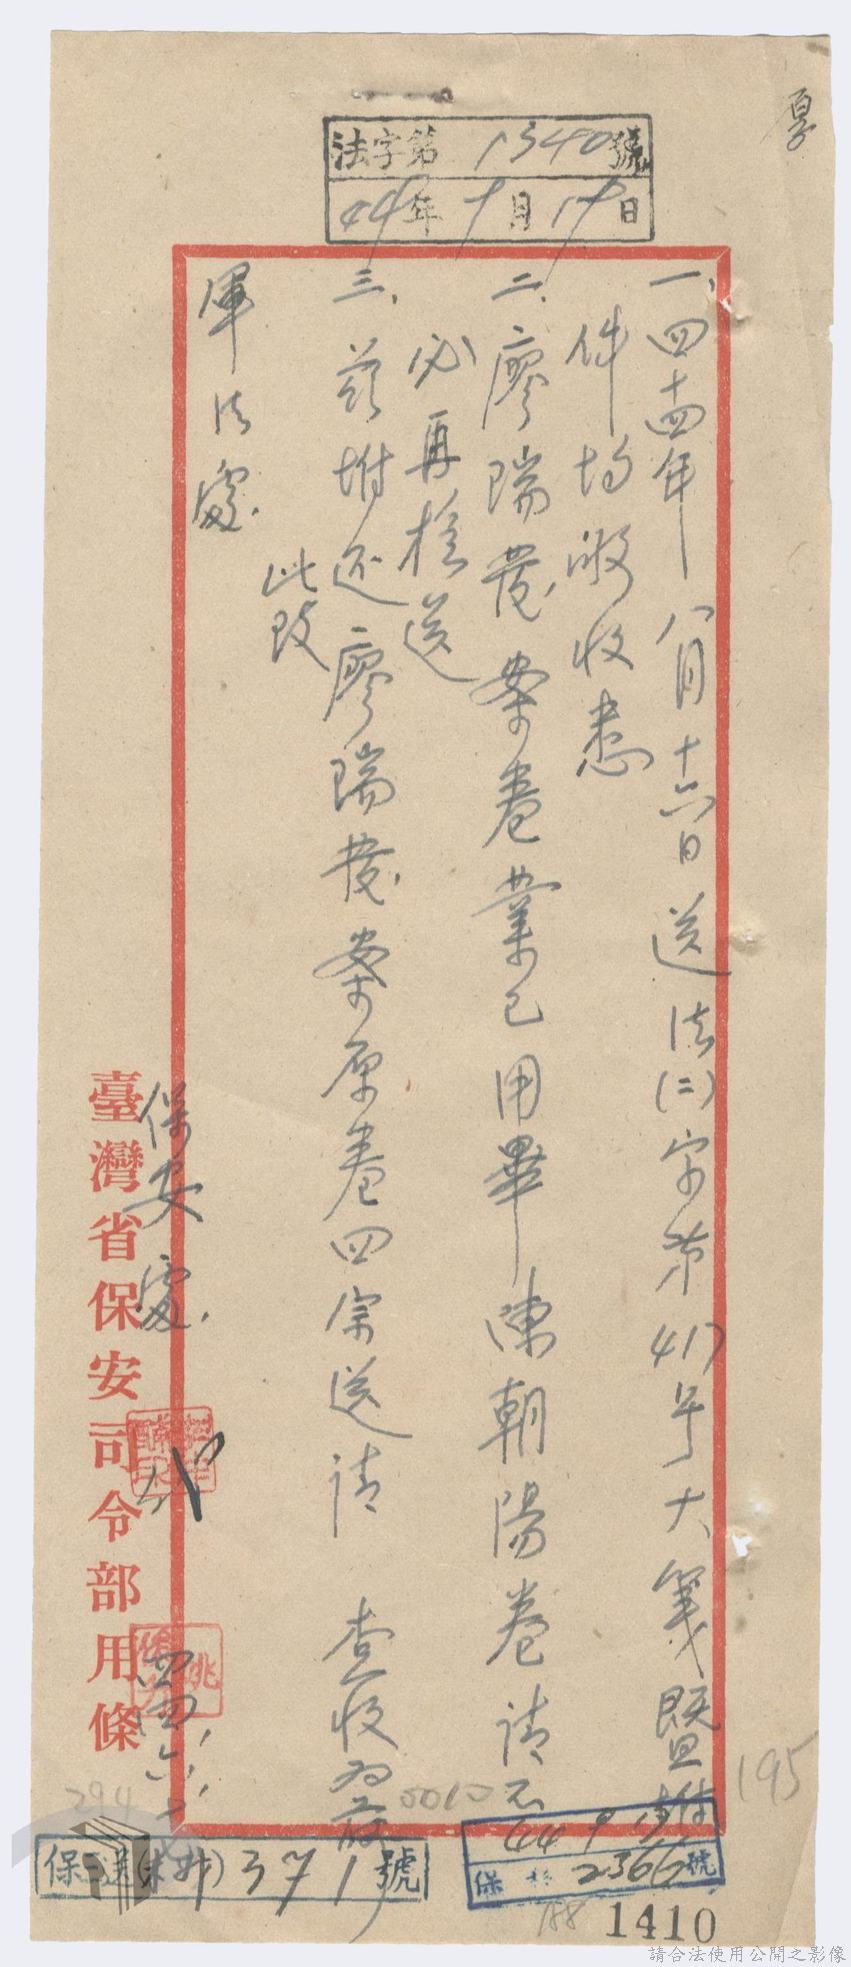 厚
法字第1340號
44年9月19日
一、四十四年八月十六日送法(二)字第417号大箋暨附
件均敬收悉
二、廖瑞發案卷業已用畢陳朝陽卷請不
必再檢送
三、茲附还廖瑞發案原卷四宗送請 查收為荷
此致
軍法處
保安處
代
臺灣省保安司令部用條
195
294
0010
保送(朱井)3791號
44 9
保 2366號
188
1410
請合法使用公開之影像